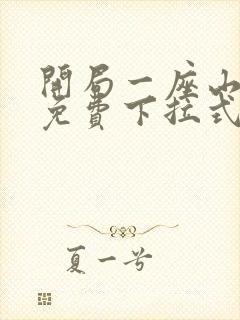 開局一座山
免費下拉式
夏一兮